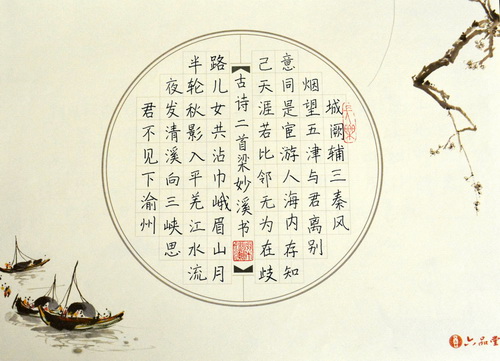 城阙辅三秦风
烟望五津与君离别
意同是宦游人海内存知
己天涯若比邻无为在歧
古诗二首梁妙溪书
路儿女共沾巾峨眉山月
半轮秋影入平羌江水流
夜发清溪向三峡思
君不见下渝州
六品堂